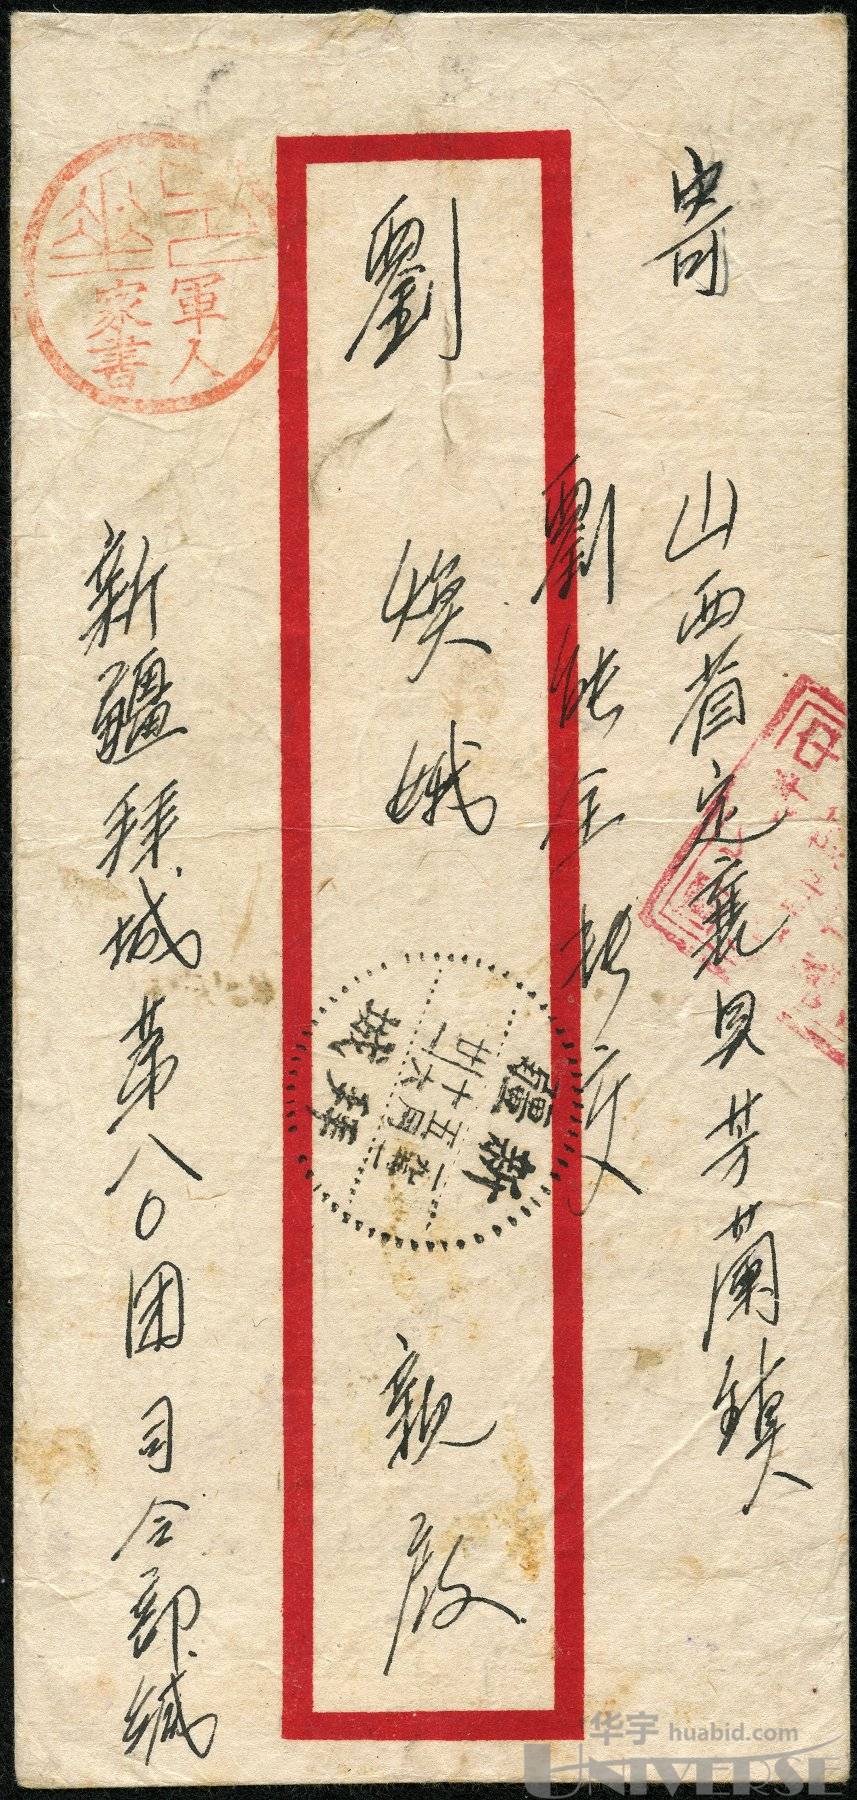 寄
山西省定襄县芳蘭鎮
劉能全轉交
劉焕娥 親啟
新疆拜城第八〇团司令部缄
軍人
家書
新疆
五十
廿
一六月
拜城
华宇 huabid.com
UNIVERSE